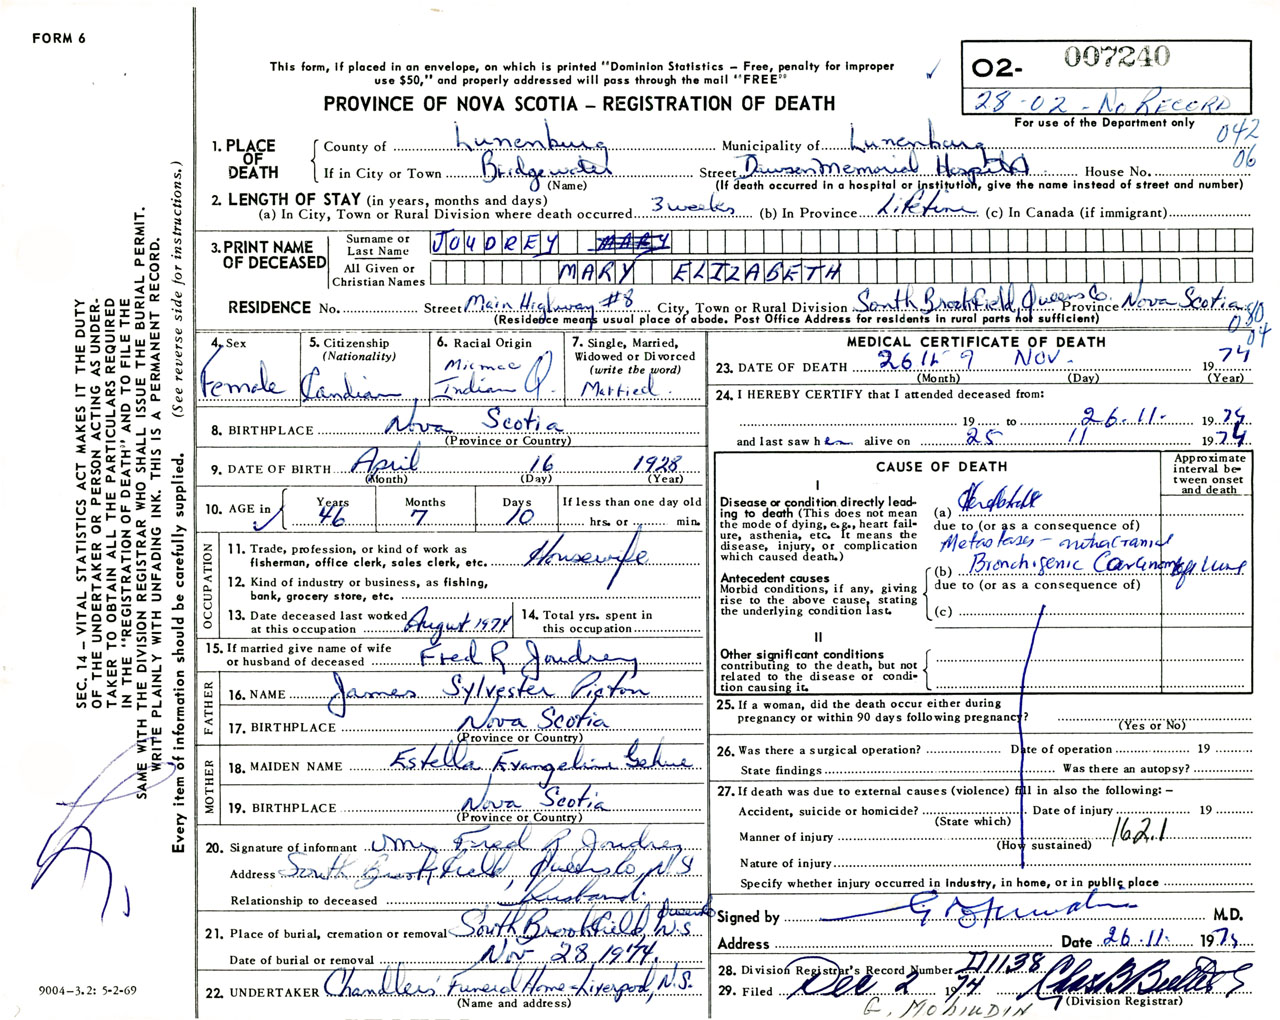 FORM 6
This form, If placed in an envelope, on which is printed "Dominion Statistics – Free, penalty for improper
use $50," and properly addressed will pass through the mail "FREE"
PROVINCE OF NOVA SCOTIA – REGISTRATION OF DEATH
O2- 007240
28-02 - No RECORD
For use of the Department only
042
06
1. PLACE OF DEATH
County of Lunenburg Municipality of Lunenburg
If in City or Town Bridgewater Street Dawson Memorial Hospital House No.
(Name) (If death occurred in a hospital or institution, give the name instead of street and number)
2. LENGTH OF STAY (in years, months and days)
(a) In City, Town or Rural Division where death occurred 3 weeks (b) In Province Lifetime (c) In Canada (if immigrant)
3. PRINT NAME OF DECEASED
Surname or Last Name JOUDREY MARY
All Given or Christian Names MARY ELIZABETH
RESIDENCE No. Street Main Highway #8 City, Town or Rural Division South Brookfield, Queens Co. Province Nova Scotia
(Residence means usual place of abode. Post Office Address for residents in rural parts not sufficient)
080
04
4. Sex
Female
5. Citizenship
(Nationality)
Candian
6. Racial Origin
Micmac
Indian
7. Single, Married,
Widowed or Divorced
(write the word)
Married
8. BIRTHPLACE Nova Scotia
(Province or Country)
9. DATE OF BIRTH April 16 1928
(Month) (Day) (Year)
10. AGE in Years Months Days If less than one day old
46 7 10 hrs. or min.
OCCUPATION
11. Trade, profession, or kind of work as
fisherman, office clerk, sales clerk, etc. Housewife
12. Kind of industry or business, as fishing,
bank, grocery store, etc.
13. Date deceased last worked
at this occupation August 1974
14. Total yrs. spent in
this occupation
15. If married give name of wife
or husband of deceased Fred R Joudrey
FATHER
16. NAME James Sylvester Picton
17. BIRTHPLACE Nova Scotia
(Province or Country)
MOTHER
18. MAIDEN NAME Estella Evangeline
19. BIRTHPLACE Nova Scotia
(Province or Country)
20. Signature of informant Fred R Joudrey
Address South Brookfield, Queens Co, N.S
Relationship to deceased Husband
21. Place of burial, cremation or removal South Brookfield, Queens Co N.S
Date of burial or removal Nov 28, 1974.
22. UNDERTAKER Chandlers' Funeral Home - Liverpool, N.S.
(Name and address)
MEDICAL CERTIFICATE OF DEATH
23. DATE OF DEATH 26 11 Nov. 1974
(Month) (Day) (Year)
24. I HEREBY CERTIFY that I attended deceased from:
19 to 26-11- 1974
and last saw her alive on 25 11 1974
CAUSE OF DEATH
Approximate
interval be-
tween onset
and death
I
Disease or condition directly lead-
ing to death (This does not
mean the mode of dying, e.g., heart fail-
ure, asthenia, etc. It means the
disease, injury, or complication
which caused death.)
(a)
due to (or as a consequence of)
Metastases - intracranial
(b) Bronchigenic Carcinoma of lung
due to (or as a consequence of)
Antecedent causes
Morbid conditions, if any, giving
rise to the above cause, stating
the underlying condition last.
(c)
II
Other significant conditions
contributing to the death, but not
related to the disease or condi-
tion causing it.
25. If a woman, did the death occur either during
pregnancy or within 90 days following pregnancy?
(Yes or No)
26. Was there a surgical operation? Date of operation 19
State findings Was there an autopsy?
27. If death was due to external causes (violence) fill in also the following: –
Accident, suicide or homicide? Date of injury 19
(State which)
Manner of injury 162.1
(How sustained)
Nature of injury
Specify whether injury occurred in Industry, in home, or in public place
Signed by M.D.
Address Date 26-11- 1974
28. Division Registrar's Record Number D1138
29. Filed Dec 2 1974
(Division Registrar)
G. MOHIUDIN
SEC. 14 – VITAL STATISTICS ACT MAKES IT THE DUTY
OF THE UNDERTAKER OR PERSON ACTING AS UNDER-
TAKER TO OBTAIN ALL THE PARTICULARS REQUIRED
IN THE "REGISTRATION OF DEATH" AND TO FILE THE
SAME WITH THE DIVISION REGISTRAR WHO SHALL ISSUE THE BURIAL PERMIT.
WRITE PLAINLY WITH UNFADING INK. THIS IS A PERMANENT RECORD.
Every item of information should be carefully supplied. (See reverse side for instructions.)
9004-3.2: 5-2-69